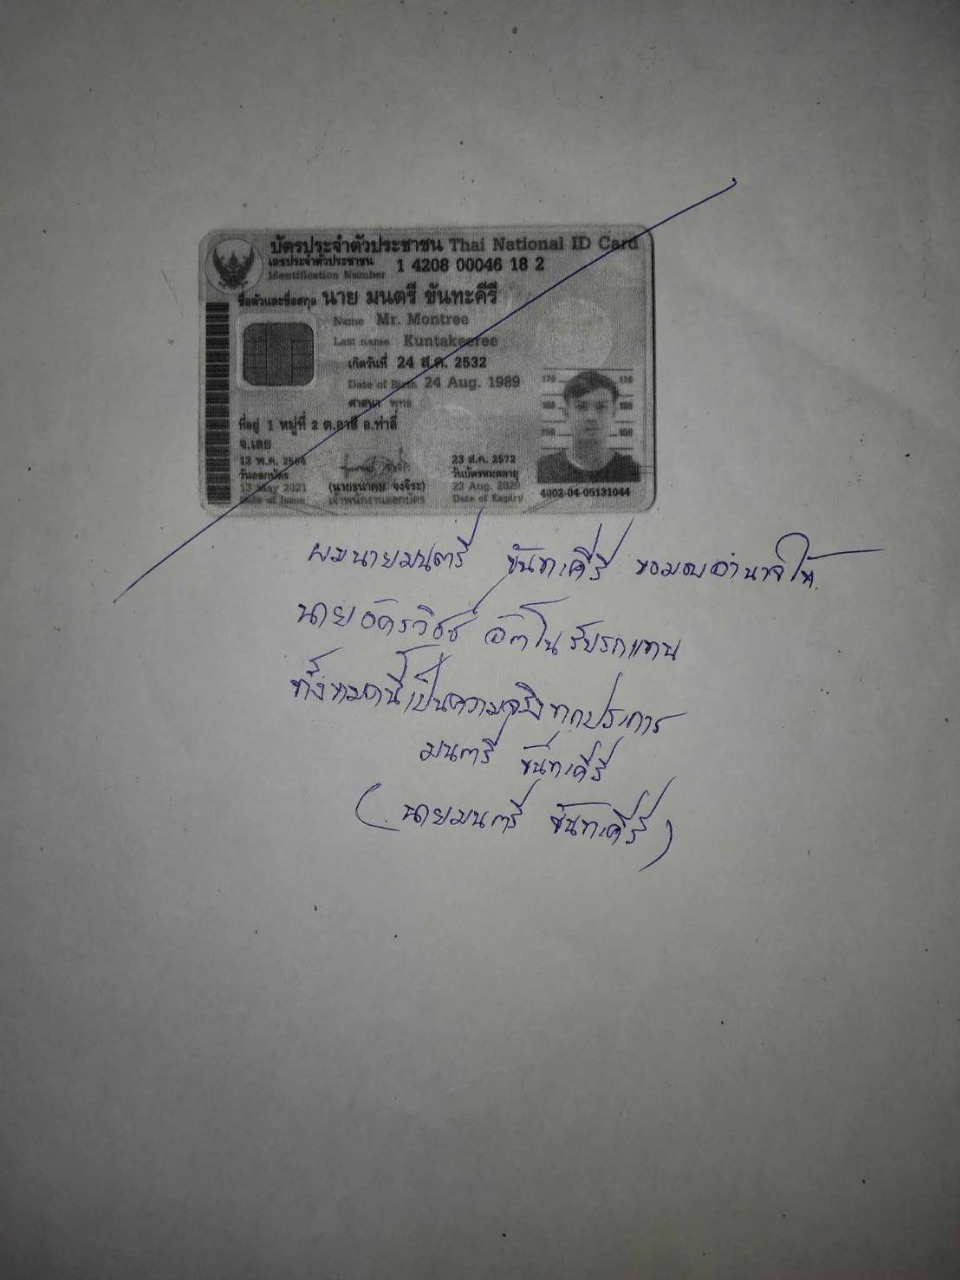 บัตรประจำตัวประชาชน Thai National ID Card
เลขประจำตัวประชาชน
Identification Number 1 4208 00046 18 2
ชื่อตัวและชื่อสกุล นาย มนตรี ขันทะคีรี
Name Mr. Montree
Last name Kuntakeeree
เกิดวันที่ 24 ส.ค. 2532
Date of Birth 24 Aug. 1989
ศาสนา พุทธ
ที่อยู่ 1 หมู่ที่ 2 ต.อาฮี อ.ท่าลี่
จ.เลย
13 พ.ค. 2564
วันออกบัตร
13 May 2021
Date of Issue
(นายธนาคม จงจิระ)
เจ้าพนักงานออกบัตร
23 ส.ค. 2572
วันบัตรหมดอายุ
23 Aug. 2029
Date of Expiry
4002-04-05131044
ผมนายมนตรี ขันทะคีรี ขอมอบอำนาจให้
นาย รับรถแทน
ทั้งหมดนี้เป็นความจริงทุกประการ
มนตรี ขันทะคีรี
(นายมนตรี ขันทะคีรี)